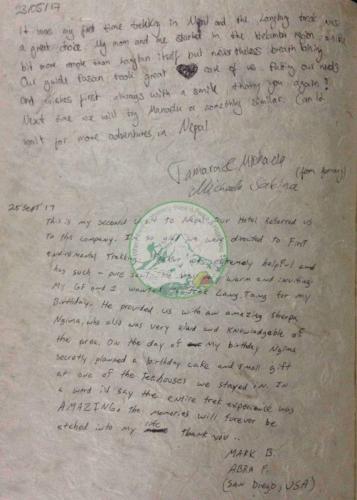 23/05/17
It was my first time trekking in Nepal and the Langtang trek was
a great choice. My mom and me started in the Helambu region, a little
bit more ample than Langtan itself but nevertheless breath taking.
Our guide Pasan took great care of us. Putting our needs
and wishes first always with a smile thank you again!
Next time we will try Manaslu or something similar. Can't
wait for more adventures in Nepal
Tamara &
(from Germany)
Michaela
25 Sept 17
This is my second visit to Nepal, our Hotel Referred us
To this company. I'm so glad we were directed to First
Environmental Trekking. extremely helpful and
has such warm and inviting.
My GF and I wanted to Trek Lang Tang for my
Birthday. He provided us with an amazing sherpa,
Ngima, who also was very kind and knowledgable of
the area. On the day of my birthday Ngima
secretly planned a birthday cake and small gift
at one of the Teahouses we stayed in. In
a word i'd say the entire trek experience was
AMAZING, the memories will forever be
etched into my life Thank you..
MARK B.
ABRA F.
(San Diego, USA)